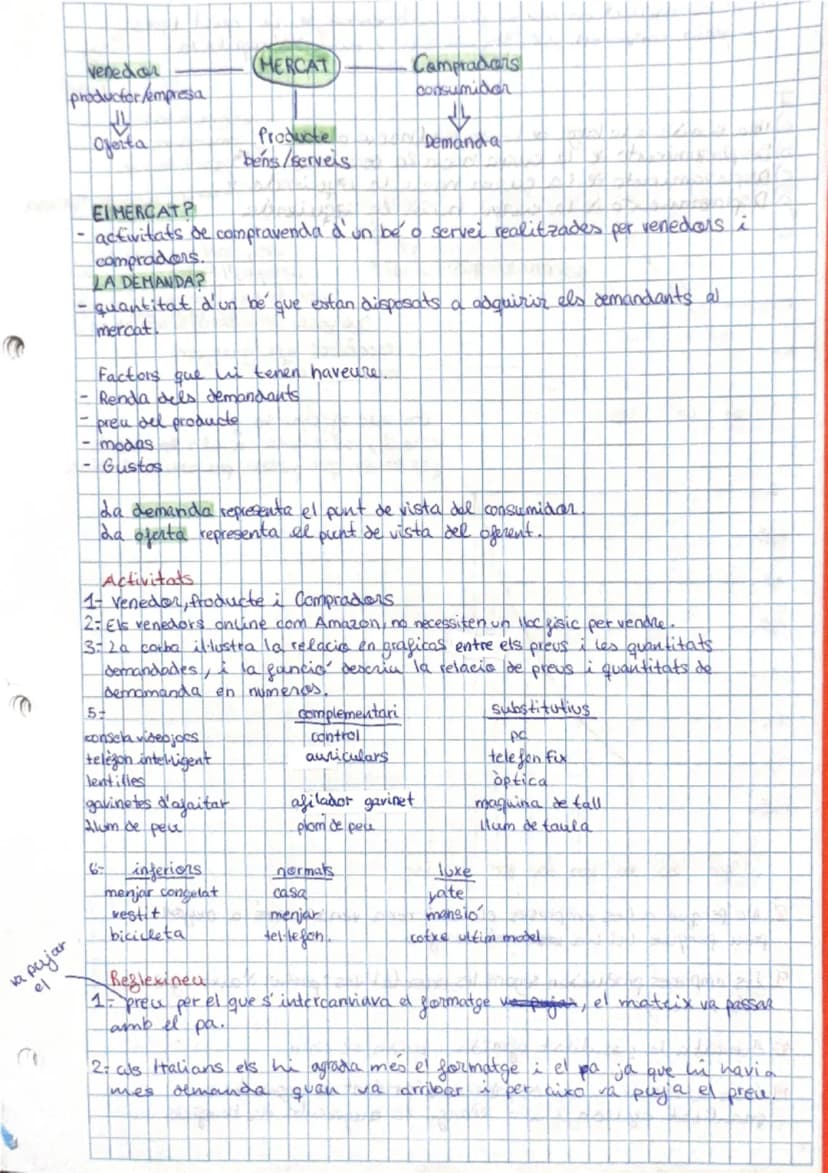 venedor MERCAT Compradors
productor/empresa consumidor
⇓ ⇓
Oferta Producte Demanda
béns/serveis
El MERCAT?
- activitats de compravenda d'un bé o servei realitzades per venedors i
compradors.
LA DEMANDA?
- quantitat d'un bé que estan disposats a adquirir els demandants al
mercat.
Factors que hi tenen haveure.
- Renda dels demandants
- preu del producte
- modas
- Gustos
La demanda representa el punt de vista del consumidor.
La oferta representa el punt de vista del oferent.
Activitats
1- Venedor, Producte i Compradors
2- Els venedors online com Amazon, no necessiten un lloc fisic per vendre.
3- La corba il·lustra la relacio en graficas entre els preus i les quantitats
demandades, i la funció descriu la relacio de preus i quantitats de
demamanda en numeros.
5- complementari substitutius
consola videojocs control pc
telèfon intel·ligent auriculars telefon fix
lentilles òptica
gavinetes d'afaitar afilador gavinet maquina de tall
llum de peu plom de peu llum de taula
6- inferiors normals luxe
menjar congelat casa yate
vestit menjar mansió
bicicleta tel·lefon. cotxe ultim model
Reflexineu
va pujar
el
1- preu per el que s'intercanviava el formatge va pujar, el mateix va passar
amb el pa.
2- als Italians els hi agrada més el formatge i el pa ja que hi havia
mes demanda quan va arribar i per aixo va puja el preu.